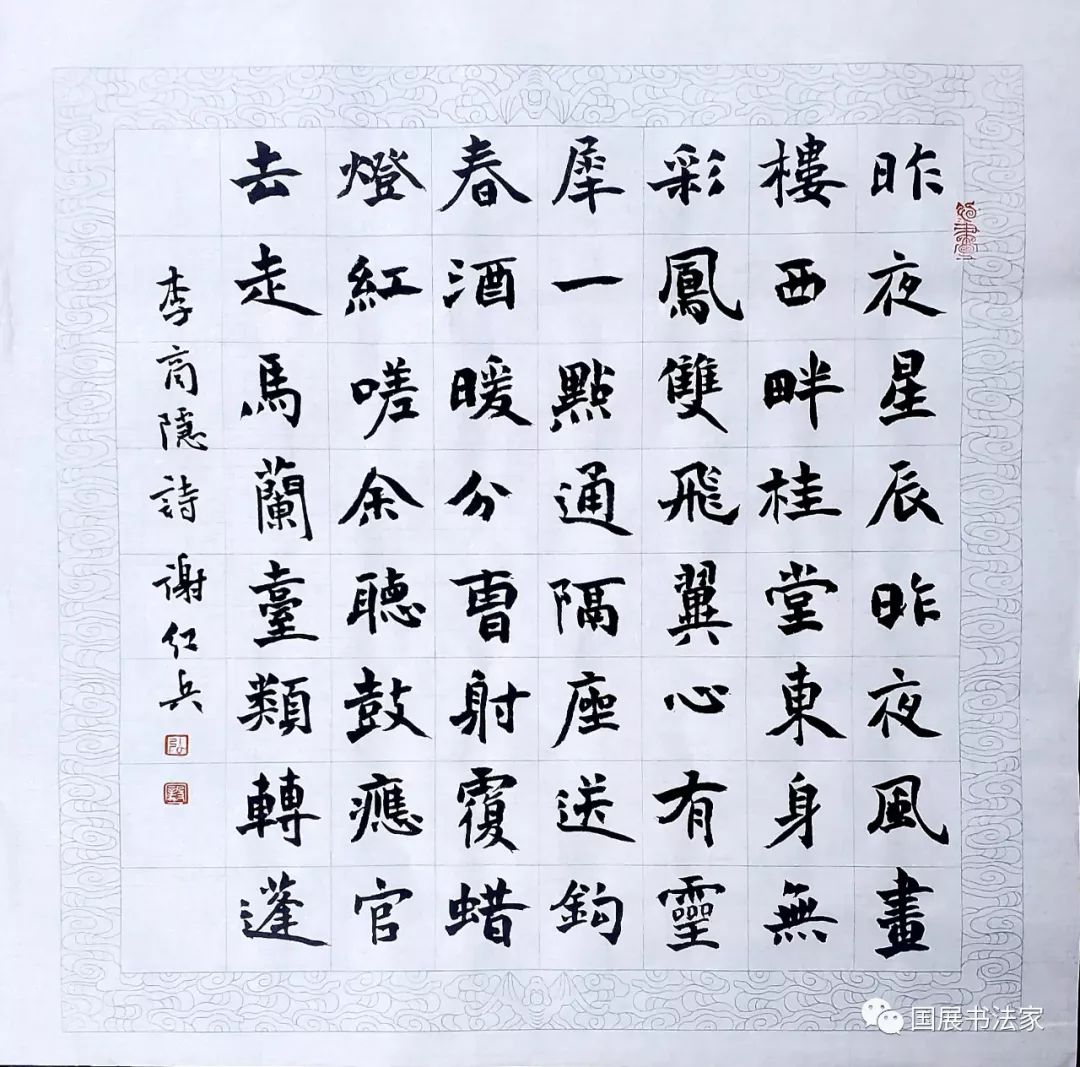 昨夜星辰昨夜風畫
樓西畔桂堂東身無
彩鳳雙飛翼心有靈
犀一點通隔座送鈎
春酒暖分曹射覆蜡
燈紅嗟余聽鼓應官
去走馬蘭臺類轉蓬
李商隱詩 谢红兵
国展书法家